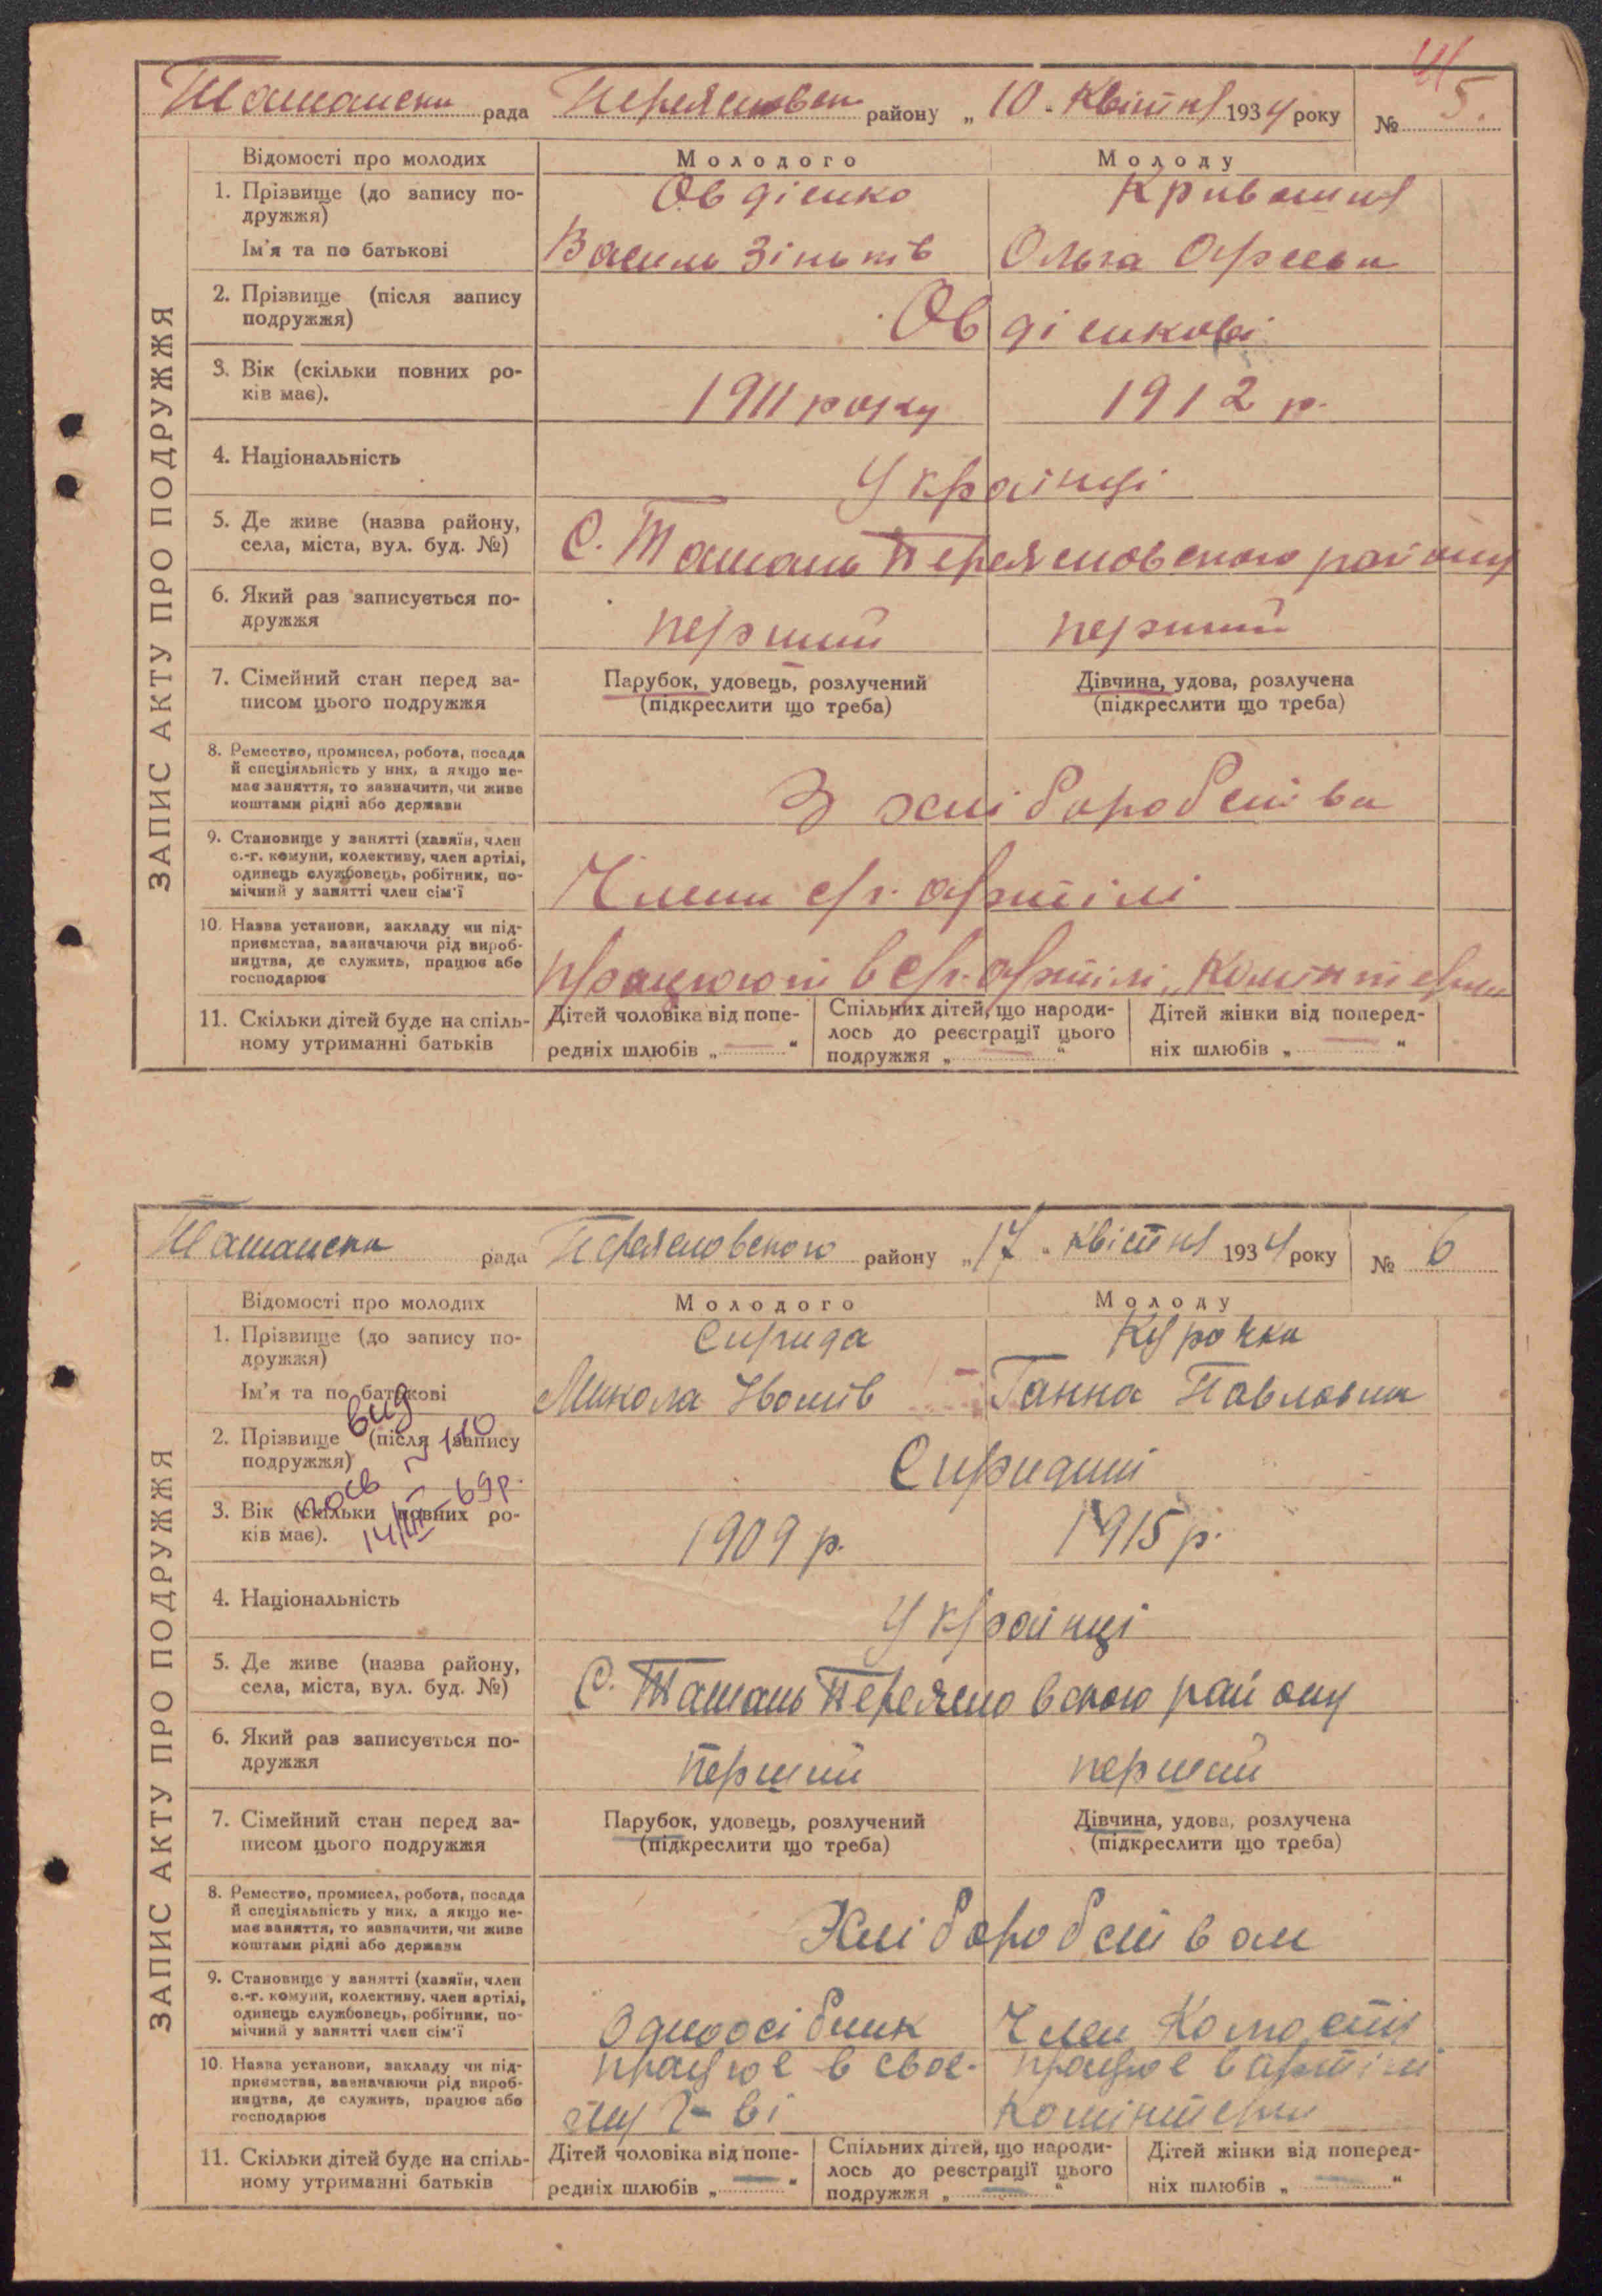 Ташанска рада Переяславськ району „10" квітня 1934 року № 5.
ЗАПИС АКТУ ПРО ПОДРУЖЖЯ
Відомості про молодих Молодого Молоду
1. Прізвище (до запису по-
дружжя) Овдієнко Кривошия
Ім'я та по батькові Василь Зіньків Ольга
2. Прізвище (після запису
подружжя) Овдієнкові
3. Вік (скільки повних ро-
ків має). 1911 року 1912 р.
4. Національність Українці
5. Де живе (назва району,
села, міста, вул. буд. №) С. Ташань Переяславського району
6. Який раз записується по-
дружжя перший перший
7. Сімейний стан перед за-
писом цього подружжя
Парубок, удовець, розлучений
(підкреслити що треба)
Дівчина, удова, розлучена
(підкреслити що треба)
8. Ремество, промисел, робота, посада
й спеціяльність у них, а якщо не-
має заняття, то зазначити, чи живе
коштами рідні або держави
З хліборобства
9. Становище у занятті (хазяїн, член
с.-г. комуни, колективу, член артілі,
одинець службовець, робітник, по-
мічний у занятті член сім'ї
Члени с/г. артілі
10. Назва установи, закладу чи під-
приємства, зазначаючи рід вироб-
ництва, де служить, працює або
господарює
працюють в с/г. артілі „Комінтерн
11. Скільки дітей буде на спіль-
ному утриманні батьків
Дітей чоловіка від попе-
редніх шлюбів „ — "
Спільних дітей, що народи-
лось до реєстрації цього
подружжя „ — "
Дітей жінки від поперед-
ніх шлюбів „ — "
Ташанска рада Переяславського району „17" квітня 1934 року № 6
ЗАПИС АКТУ ПРО ПОДРУЖЖЯ
Відомості про молодих Молодого Молоду
1. Прізвище (до запису по-
дружжя) Сирида Курочка
Ім'я та по батькові Микола Іванів Ганна Павловна
2. Прізвище (після запису
подружжя) Сириди
вид
14/III-69р.
3. Вік (скільки повних ро-
ків має). 1909 р. 1915 р.
4. Національність Українці
5. Де живе (назва району,
села, міста, вул. буд. №) С. Ташань Переяславського району
6. Який раз записується по-
дружжя перший перший
7. Сімейний стан перед за-
писом цього подружжя
Парубок, удовець, розлучений
(підкреслити що треба)
Дівчина, удова, розлучена
(підкреслити що треба)
8. Ремество, промисел, робота, посада
й спеціяльність у них, а якщо не-
має заняття, то зазначити, чи живе
коштами рідні або держави
Хліборобством
9. Становище у занятті (хазяїн, член
с.-г. комуни, колективу, член артілі,
одинець службовець, робітник, по-
мічний у занятті член сім'ї
Одноосібник Член
10. Назва установи, закладу чи під-
приємства, зазначаючи рід вироб-
ництва, де служить, працює або
господарює
працює в своє- працює в артілі
му г-ві Комінтерн
11. Скільки дітей буде на спіль-
ному утриманні батьків
Дітей чоловіка від попе-
редніх шлюбів „ — "
Спільних дітей, що народи-
лось до реєстрації цього
подружжя „ — "
Дітей жінки від поперед-
ніх шлюбів „ — "